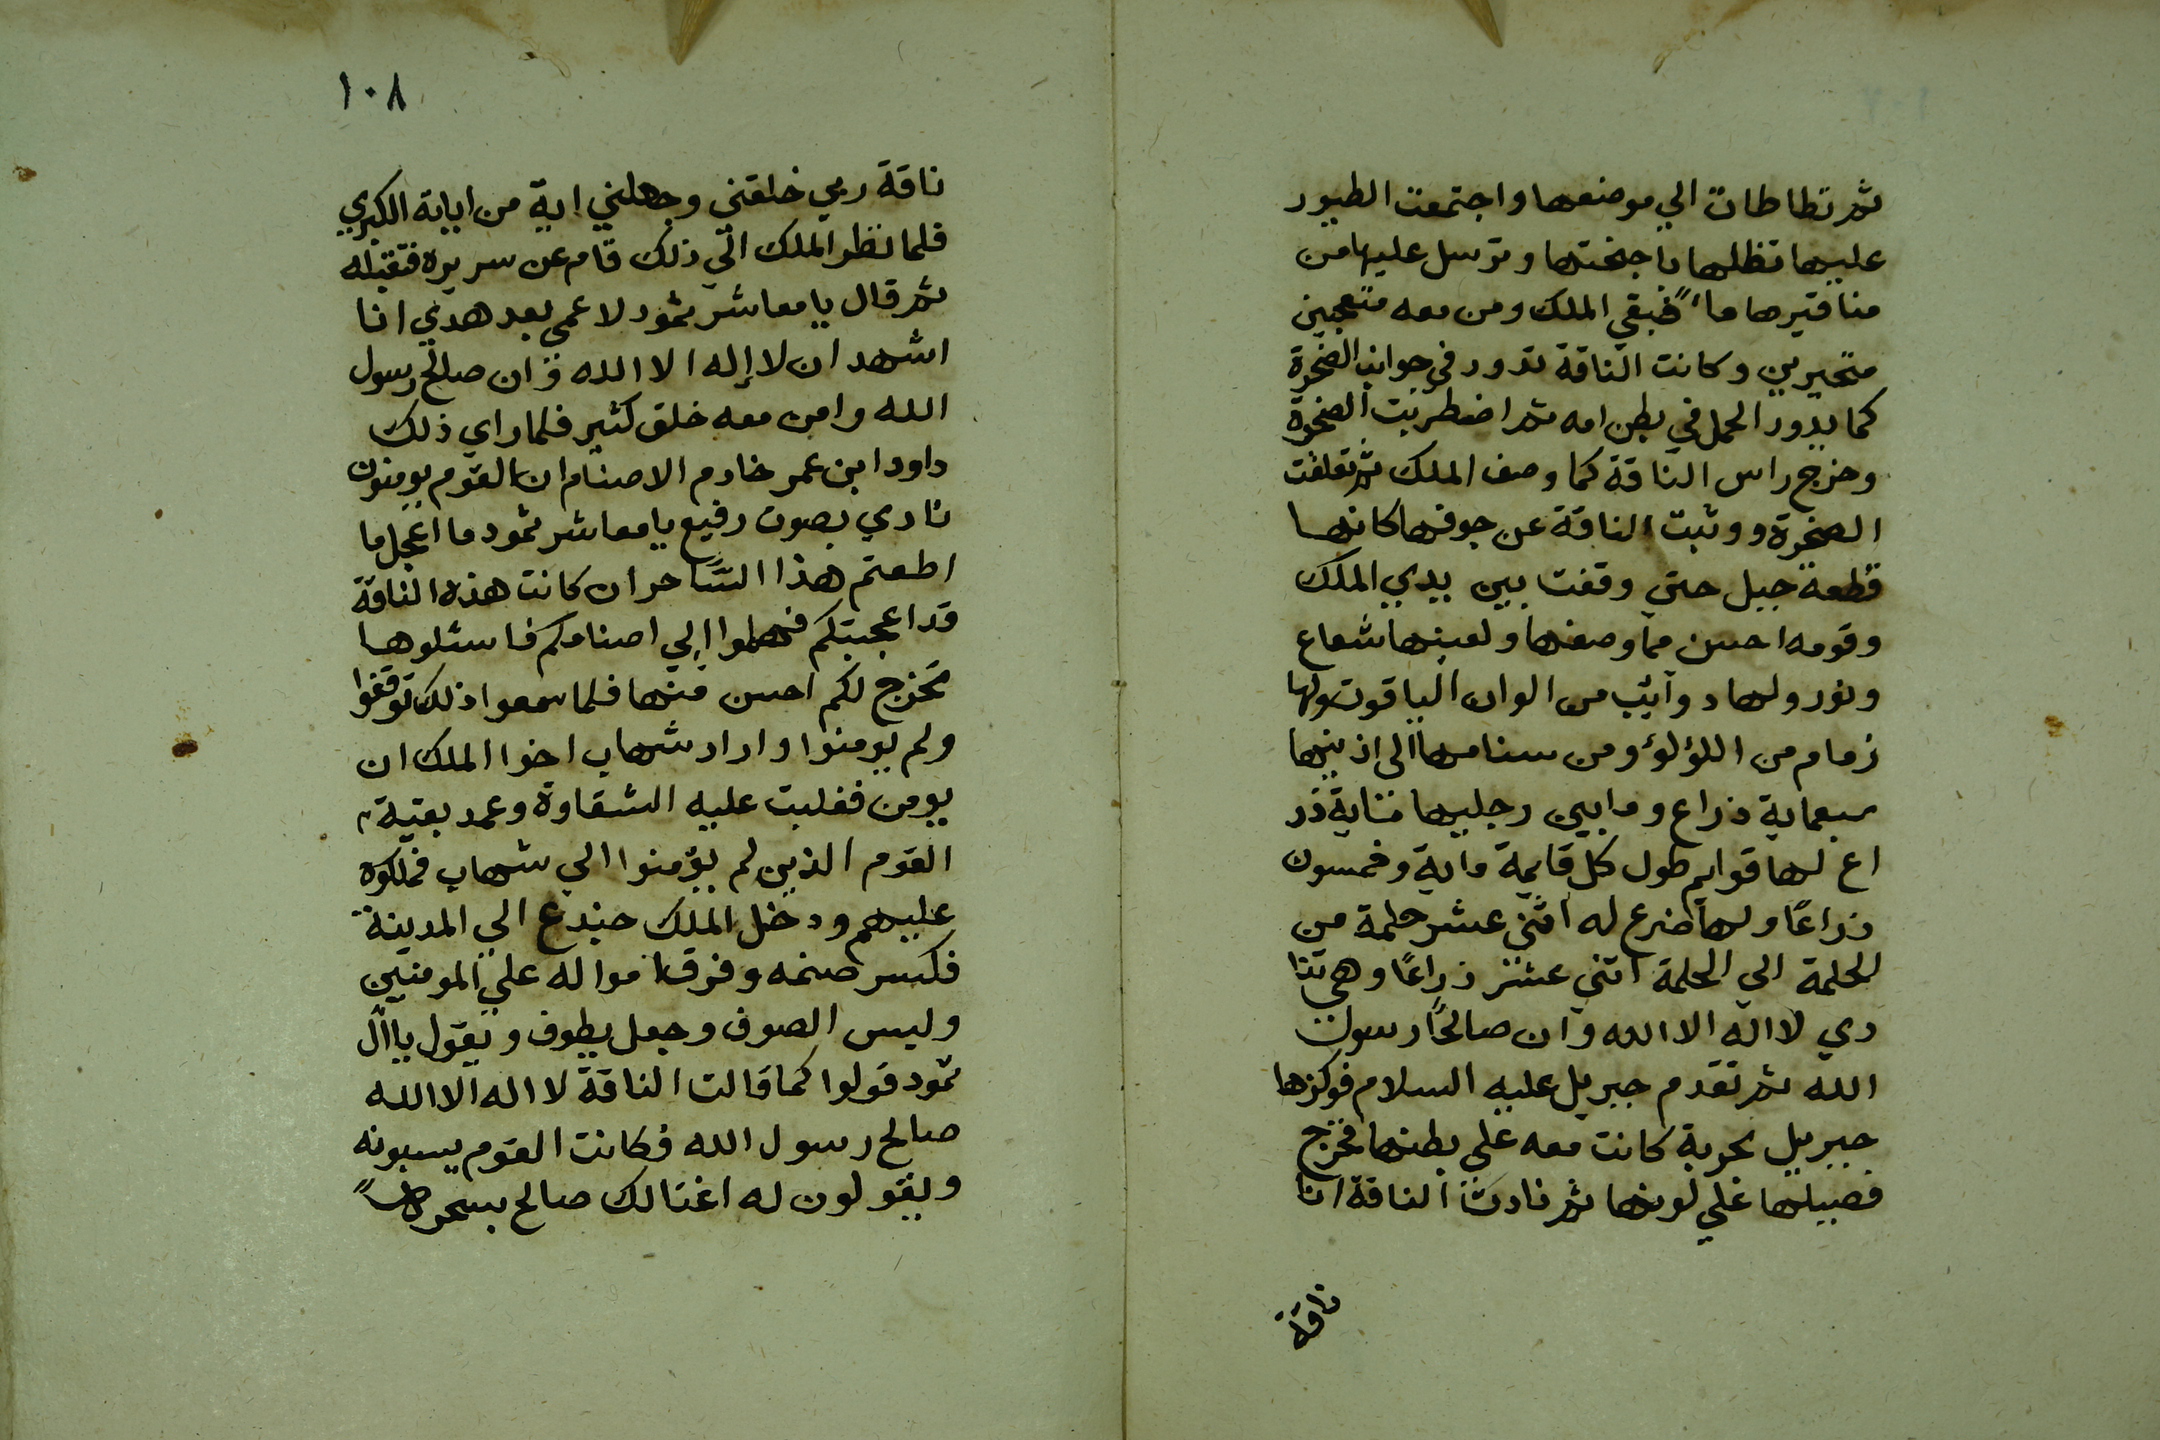 ثم تطاطات الي موضعها واجتمعت الطيور
عليها تظلها باجنحتها وترسل عليها من
مناقيرها ماءً فبقي الملك ومن معه متعجبين
متحيرين وكانت الناقة تدور في جوانب الصخرة
كما يدور الحمل في بطن امه ثم اضطربت الصخرة
وخرج راس الناقة كما وصف الملك ثم تفلقت
الصخرة ووثبت الناقة عن جوفها كانها
قطعة جبل حتي وقفت بين يدي الملك
وقومه احسن مما وصفها ولعينها شعاع
ونور ولها دوآئب من الوان الياقوت ولها
زمام من اللؤلؤ ومن سنامها الى اذنيها
سبعماية ذراع وما بين رجليها ماية ذر
اع لها قوايم طول كل قايمة ماية وخمسون
ذراعًا ولها ضرع له اثني عشر حلمة من
الحلمة الي الحلمة اثني عشر ذراعًا وهي تنا
دي لا اله الا الله وان صالحًا رسول
الله ثم تقدم جبريل عليه السلام فوكزها
جبريل بحربة كانت معه علي بطنها فخرج
فصيلها علي لونها ثم نادت الناقة انا
ناقة
١٠٨
ناقة ربي خلقني وجعلني اية من اياته الكبري
فلما نظر الملك الي ذلك قام عن سريره فقبله
ثم قال يا معاشر ثمود لا عمي بعد هدي انا
اشهد ان لا إله الا الله وان صالح رسول
الله وامن معه خلق كثير فلما راي ذلك
داود ابن عمر خادم الاصنام ان القوم يومنون
نادي بصوت رفيع يا معاشر ثمود ما اعجل ما
اطعتم هذا السّاحر ان كانت هذه الناقة
قد اعجبتكم فهلموا إلي اصنامكم فاسئلوها
تخرج لكم احسن منها فلما سمعوا ذلك توقفوا
ولم يومنوا واراد شهاب اخوا الملك ان
يومن فغلبت عليه الشقاوة وعمد بقية
القوم الذين لم يؤمنوا الي شهاب فملكوه
عليهم ودخل الملك جندع الي المدينة
فكسر صنمه وفرق امواله علي المومنين
ولبس الصوف وجعل يطوف ويقول يا آل
ثمود قولوا كما قالت الناقة لا اله الا الله
صالح رسول الله فكانت القوم يسبونه
ويقولون له اغتالك صالح بسحره